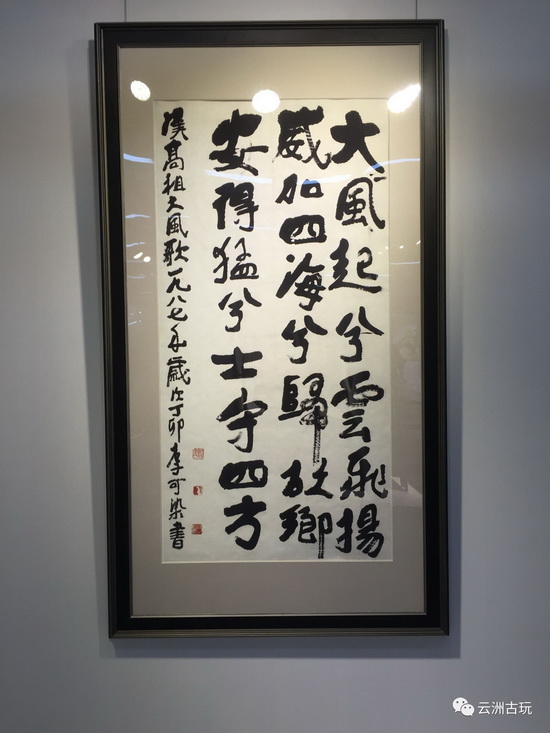 大風起兮雲飛揚
威加四海兮歸故鄉
安得猛兮士守四方
漢高祖大風歌一九八七年歲次丁卯李可染書
云洲古玩